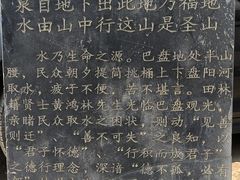 泉自地下出此地乃福地
水由山中行这山是圣山
水乃生命之源。巴盘地处半山
腰，民众朝夕提筒挑桶上下盘阳河
取水，疲于不便，苦不堪言。田林
籍贤士黄鸿林先生光临巴盘观光，
亲睹民众取水之困状，则动“见善
则迁”“善不可失”之良知，以
“君子怀德”“行积而成君子”
之德行理念，深谙“德不孤，必有